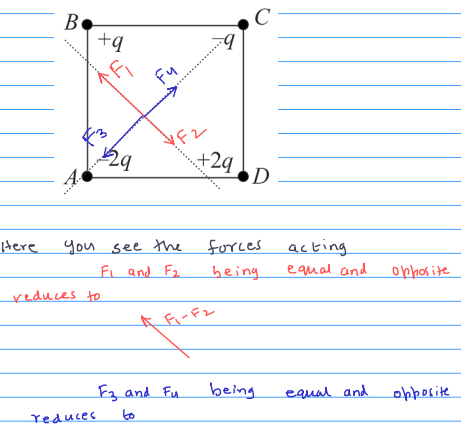 B
C
+q
-q
F1
F4
F3
F2
-2q
+2q
A
D
Here you see the forces acting
F1 and F2 being equal and opposite
reduces to
F1-F2
F3 and F4 being equal and opposite
reduces to